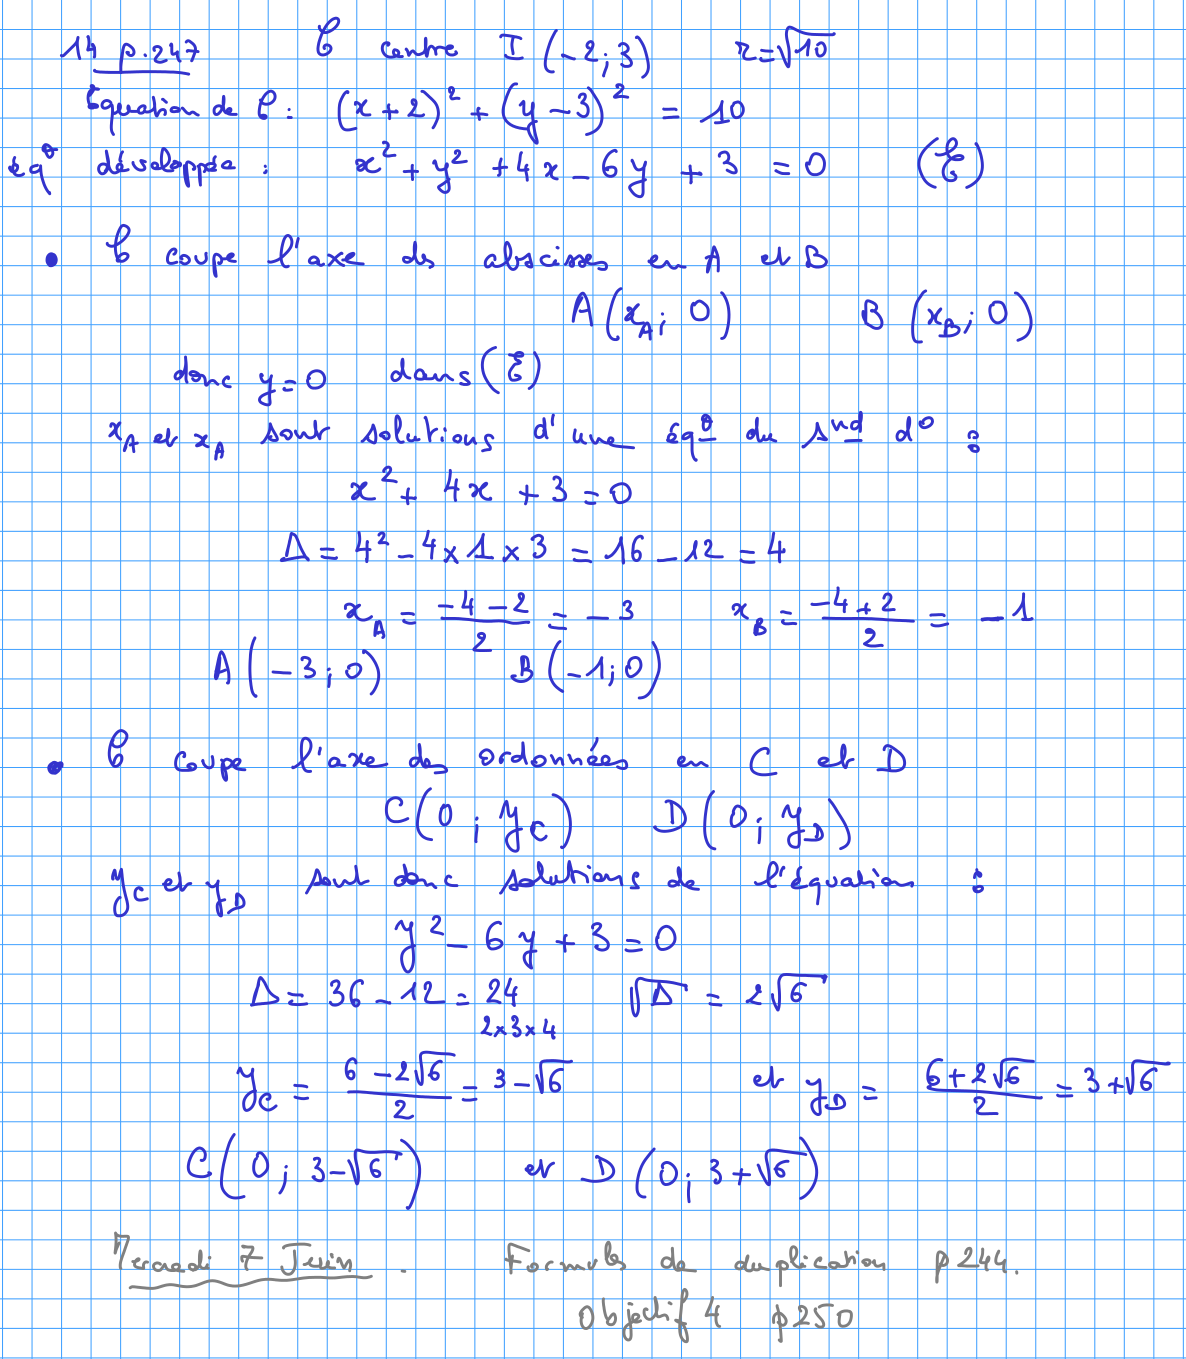 14 p.247 𝒞 centre I (-2;3) r=√10
Équation de 𝒞 : (x+2)² + (y-3)² = 10
éq° développée : x² + y² + 4x - 6y + 3 = 0 (ℰ)
• 𝒞 coupe l'axe des abscisses en A et B
A(x_A; 0) B(x_B; 0)
donc y=0 dans (ℰ)
x_A et x_A sont solutions d'une éq° du snd d° :
x² + 4x + 3 = 0
Δ = 4² - 4×1×3 = 16 - 12 = 4
x_A = (-4-2)/2 = -3 x_B = (-4+2)/2 = -1
A(-3;0) B(-1;0)
• 𝒞 coupe l'axe des ordonnées en C et D
C(0; y_C) D(0; y_D)
y_C et y_D sont donc solutions de l'équation :
y² - 6y + 3 = 0
Δ = 36 - 12 = 24 √Δ = 2√6
2×3×4
y_C = (6-2√6)/2 = 3-√6 et y_D = (6+2√6)/2 = 3+√6
C(0; 3-√6) et D(0; 3+√6)
Mercredi 7 Juin. Formules de duplication p 244.
Objectif 4 p250